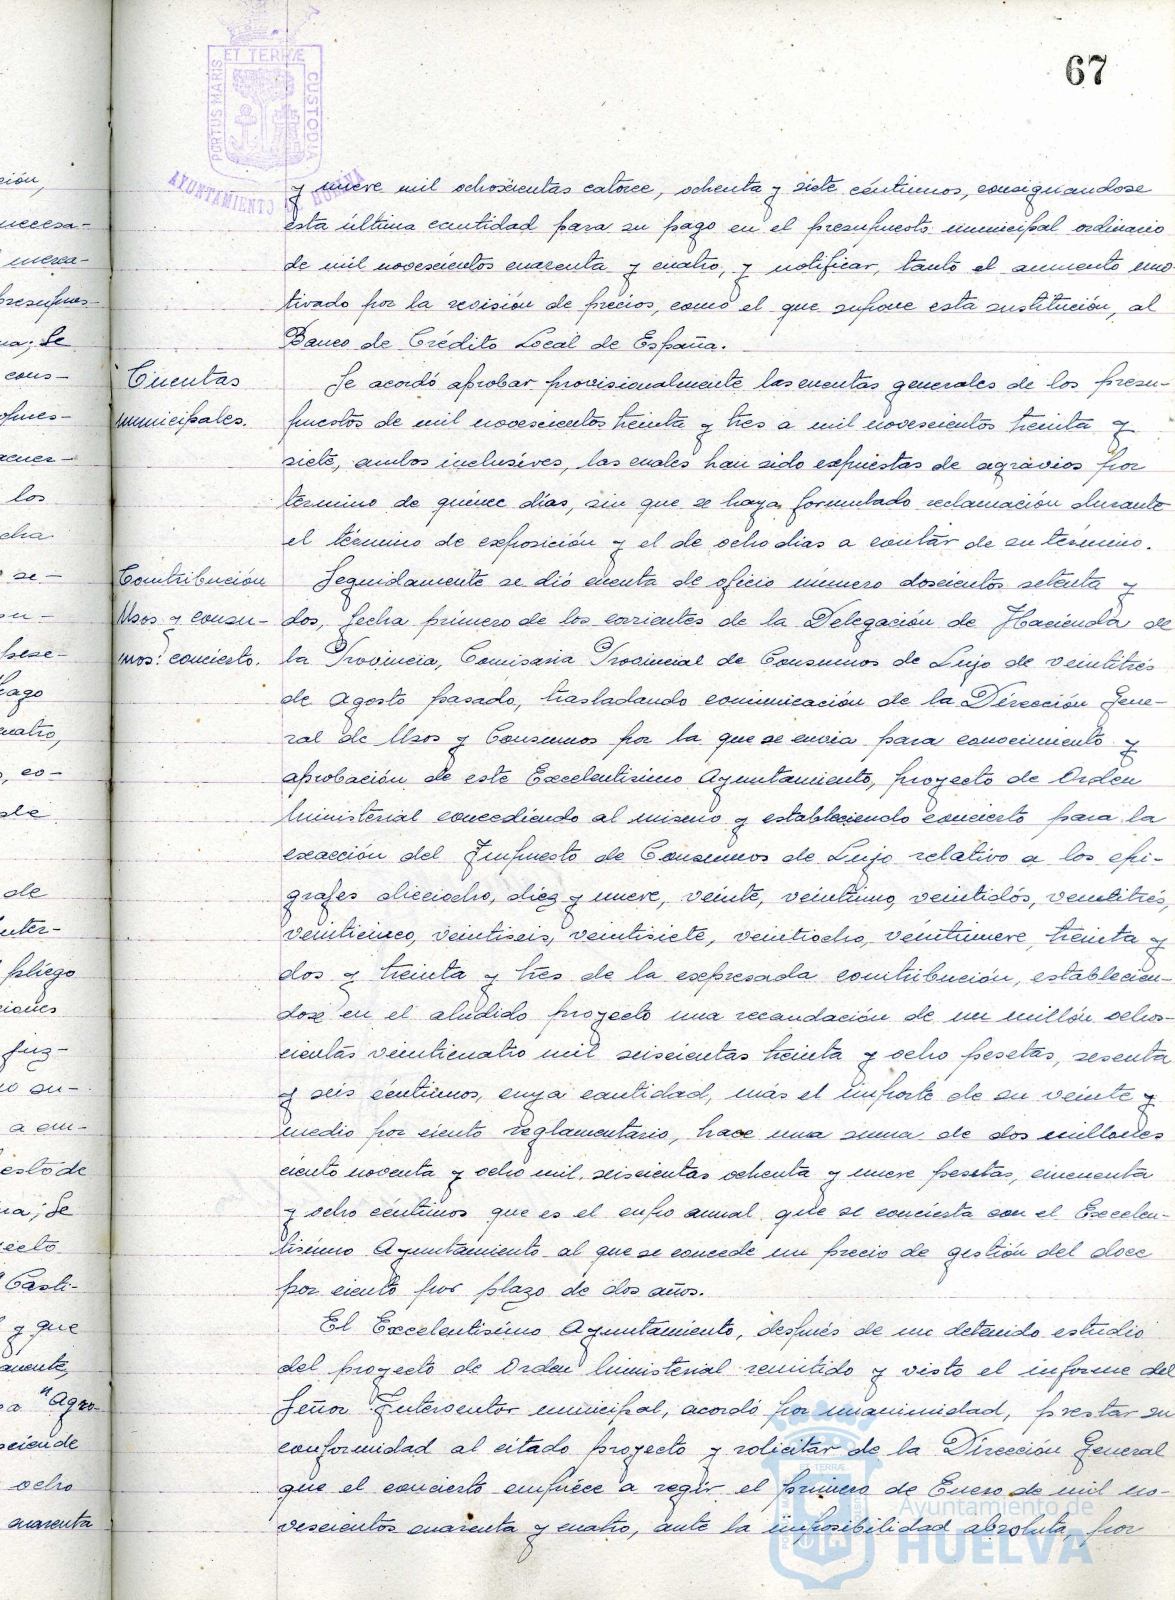 67
PORTUS MARIS ET TERRÆ CUSTODIA
AYUNTAMIENTO DE HUELVA
y nueve mil ochoscientas catorce, ochenta y siete céntimos, consignandose
esta última cantidad para su pago en el presupuesto municipal ordinario
de mil novescientos cuarenta y cuatro, y notificar, tanto el aumento mo-
tivado por la revisión de precios, como el que supone esta sustitución, al
Banco de Crédito Local de España.
Cuentas
municipales.
Se acordó aprobar provisionalmente las cuentas generales de los presu-
puestos de mil novescientos treinta y tres a mil novescientos treinta y
siete, ambos inclusives, las cuales han sido expuestas de agravios por
término de quince días, sin que se haya formulado reclamación durante
el término de exposición y el de ocho dias a contar de su término.
Contribución
Usos y consu-
mos: concierto.
Seguidamente se dió cuenta de oficio número doscientos setenta y
dos, fecha primero de los corrientes de la Delegación de Hacienda de
la Provincia, Comisaria Provincial de Consumos de Lujo de veintitrés
de Agosto pasado, trasladando comunicación de la Dirección Gene-
ral de Usos y Consumos por la que se envia para conocimiento y
aprobación de este Excelentísimo Ayuntamiento, proyecto de Orden
Ministerial concediendo al mismo y estableciendo concierto para la
exacción del Impuesto de Consumos de Lujo relativo a los epi-
grafes dieciocho, diez y nueve, veinte, veintiuno, veintidós, veintitrés,
veinticinco, veintiseis, veintisiete, veintiocho, veintinueve, treinta y
dos y treinta y tres de la expresada contribución, establecien-
dose en el aludido proyecto una recaudación de un millón ochos-
cientas veinticuatro mil seiscientas treinta y ocho pesetas, sesenta
y seis céntimos, cuya cantidad, más el importe de su veinte y
medio por ciento reglamentario, hace una suma de dos millones
ciento noventa y ocho mil seiscientas ochenta y nueve pesetas, cincuenta
y ocho céntimos que es el cupo anual que se concierta con el Excelen-
tísimo Ayuntamiento al que se concede un precio de gestión del doce
por ciento por plazo de dos años.
El Excelentísimo Ayuntamiento, después de un detenido estudio
del proyecto de Orden Ministerial remitido y visto el informe del
Señor Interventor municipal, acordó por unanimidad, prestar su
conformidad al citado proyecto y solicitar de la Dirección General
que el concierto empiece a regir el primero de Enero de mil no-
vescientos cuarenta y cuatro, ante la imposibilidad absoluta, por
Ayuntamiento de
HUELVA